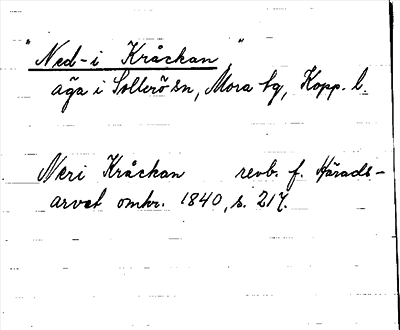 "Ned-i Kråckan"
äga i Sollerö sn, Mora tg, Kopp. l.
Neri Kråckan revb. f. Härads-
arvet omkr. 1840, s. 217.